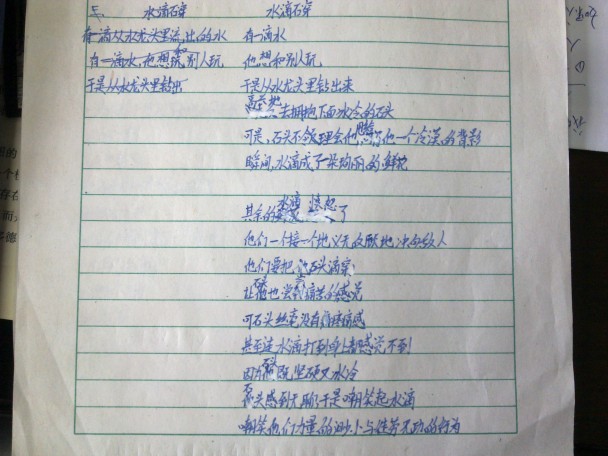 五、 水滴石穿
水滴石穿
有一滴从水龙头里流出的水
有一滴水,他想和别人玩,
于是从水龙头里钻出
有一滴水
他想和别人玩
于是从水龙头里钻出来
去拥抱下面冰冷的石头
可是,石头不做理会他 了他一个冷漠的背影
瞬间,水滴成了一朵绚丽的鲜花
其余的水滴愤怒了
他们一个接一个地义无反顾地冲向敌人
他们要把石头滴穿
让 也尝尝痛苦的感觉
可石头丝毫没有疼痛感
甚至连水滴打到身上都感觉不到
因为 既坚硬又冰冷
石头感到无聊,于是嘲笑起水滴
嘲笑他们力量的渺小与徒劳无功的行为